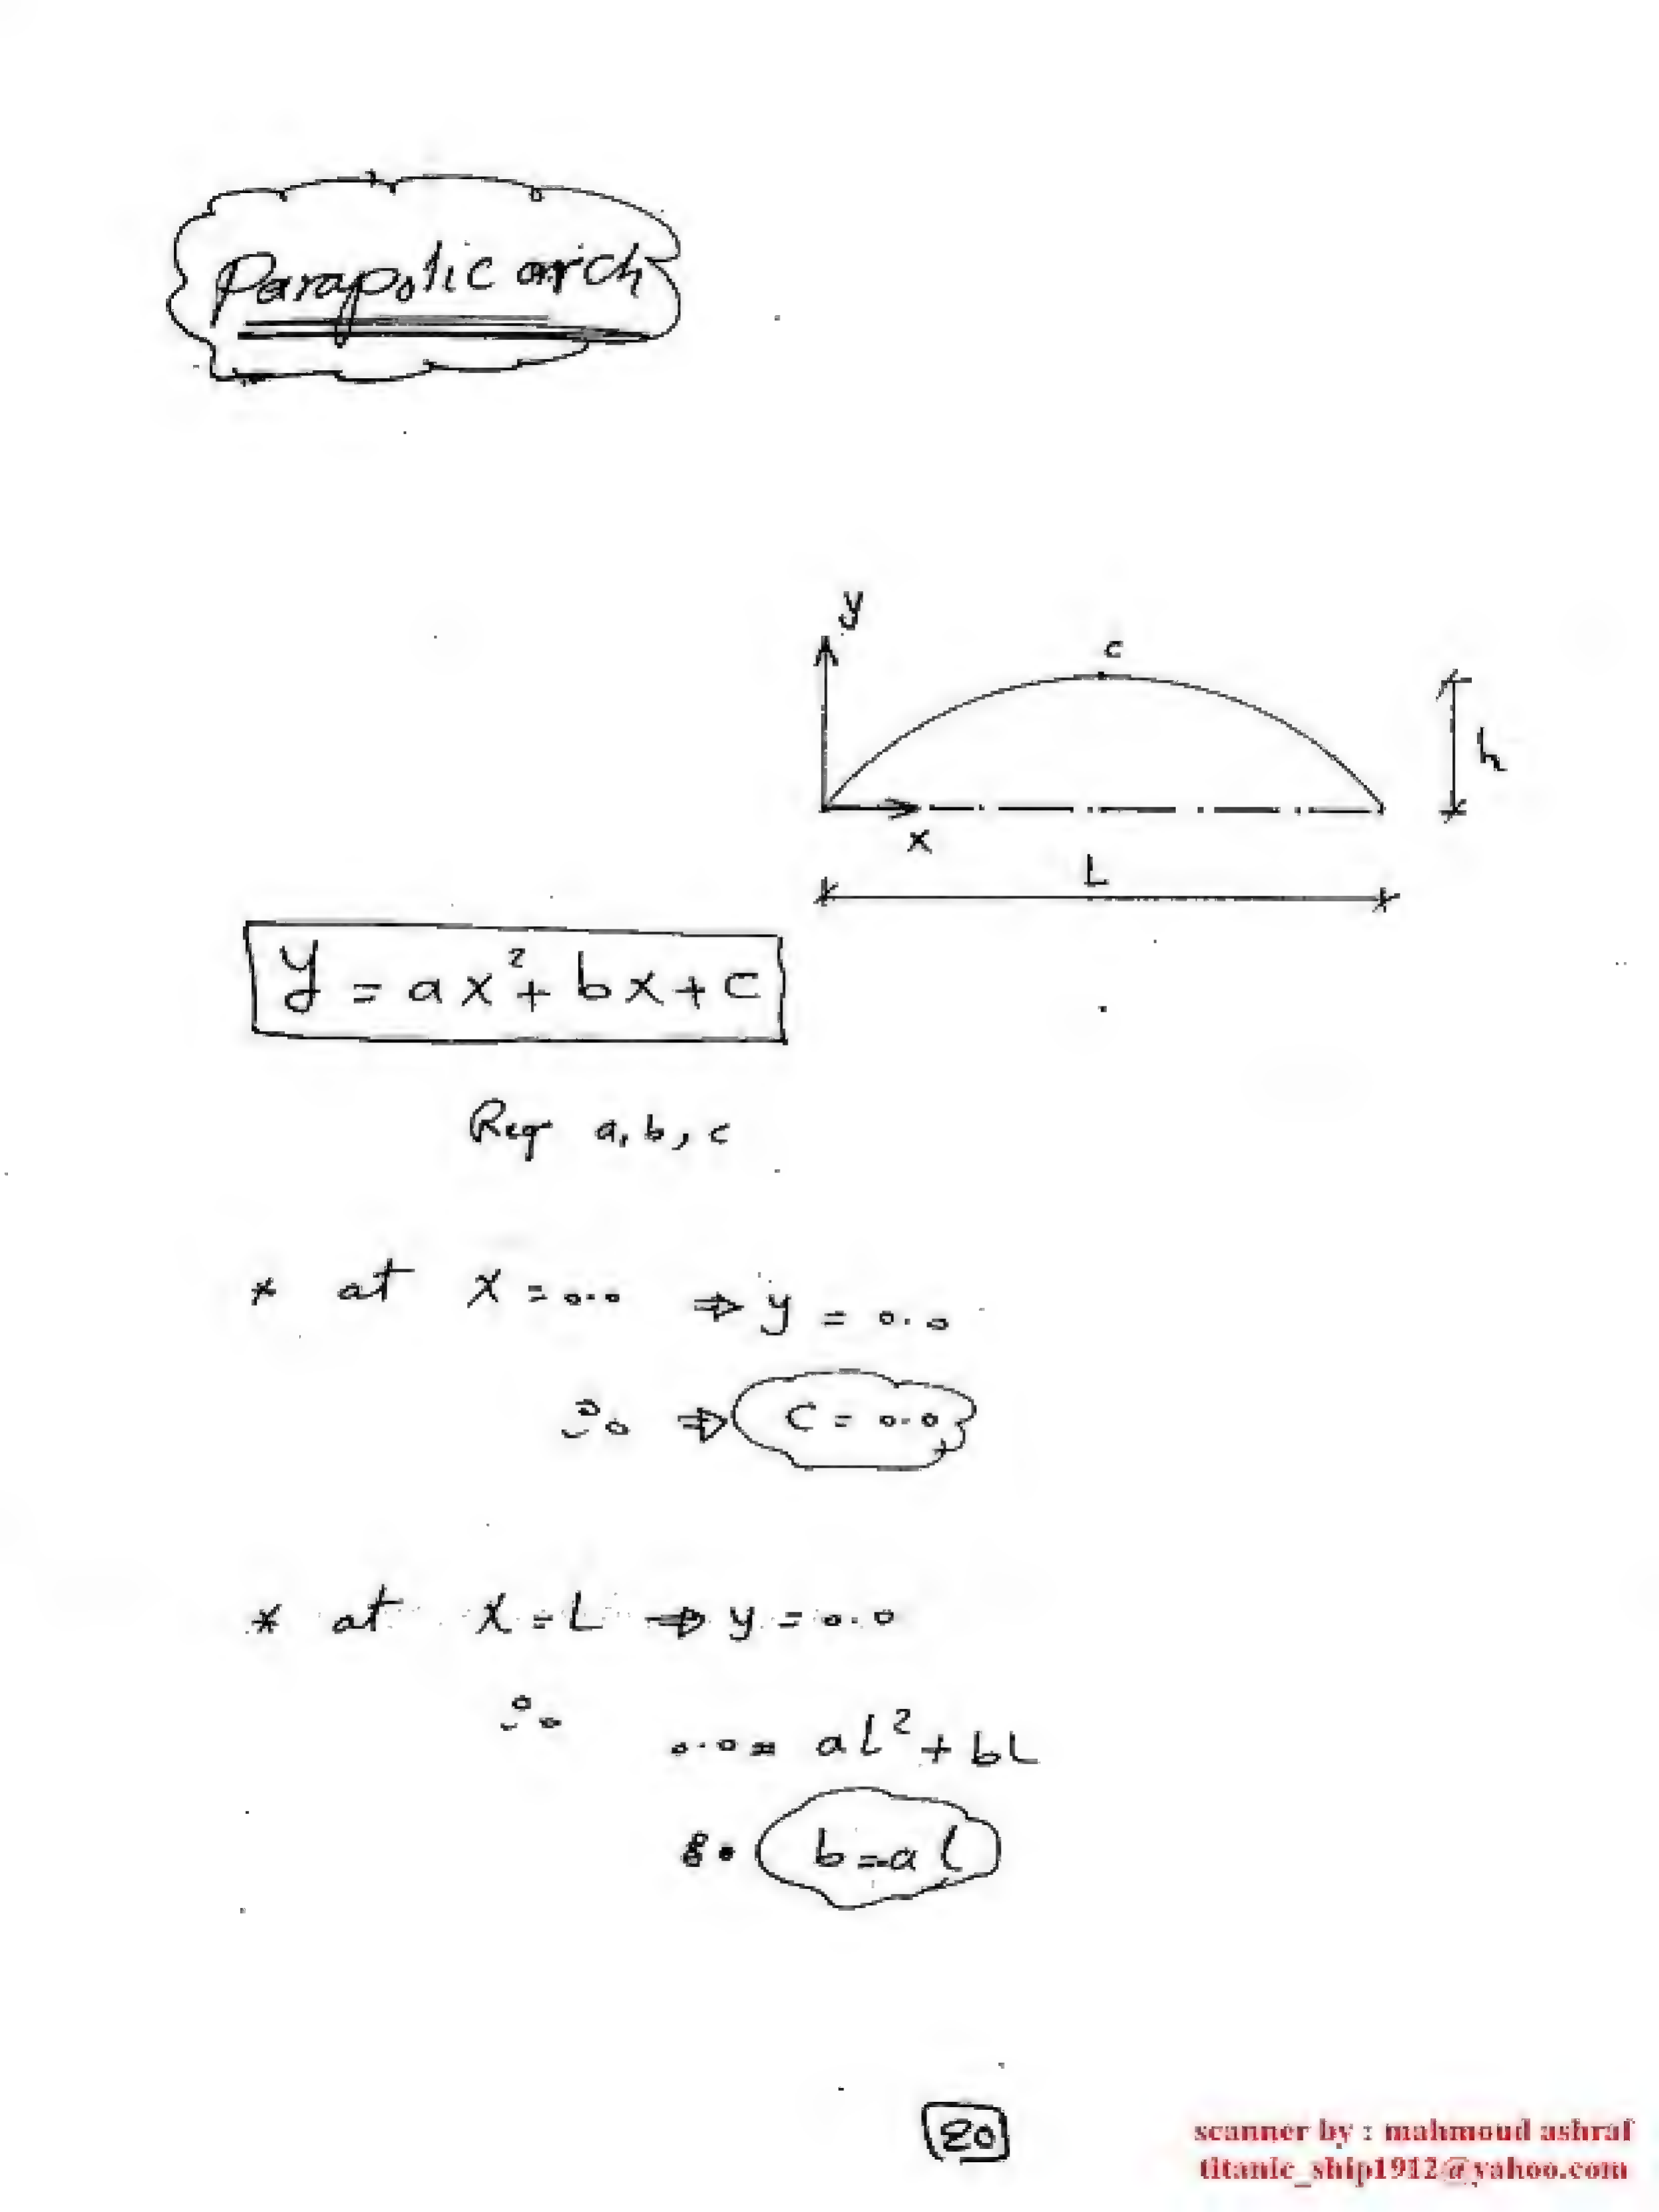 Parapolic arch
y
c
h
x
L
y = ax² + bx + c
Req a, b, c
* at x = 0.0 ⇒ y = 0.0
∴ ⇒ C = 0.0
* at x = L ⇒ y = 0.0
∴ 0.0 = al² + bL
∴ b = -al
20
scanner by : mahmoud ashraf
titanic_ship1912@yahoo.com